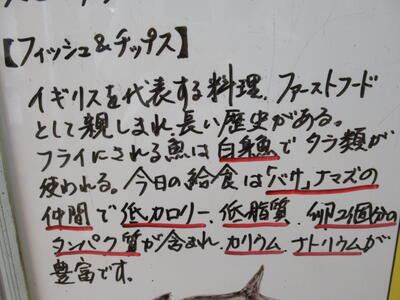 【フィッシュ&チップス】
イギリスを代表する料理、ファーストフード
として親しまれ、長い歴史がある。
フライにされる魚は白身魚でタラ類が
使われる。今日の給食は「バサ」ナマズの
仲間で低カロリー、低脂質、卵2個分の
タンパク質が含まれ、カリウム、ナトリウムが
豊富です。